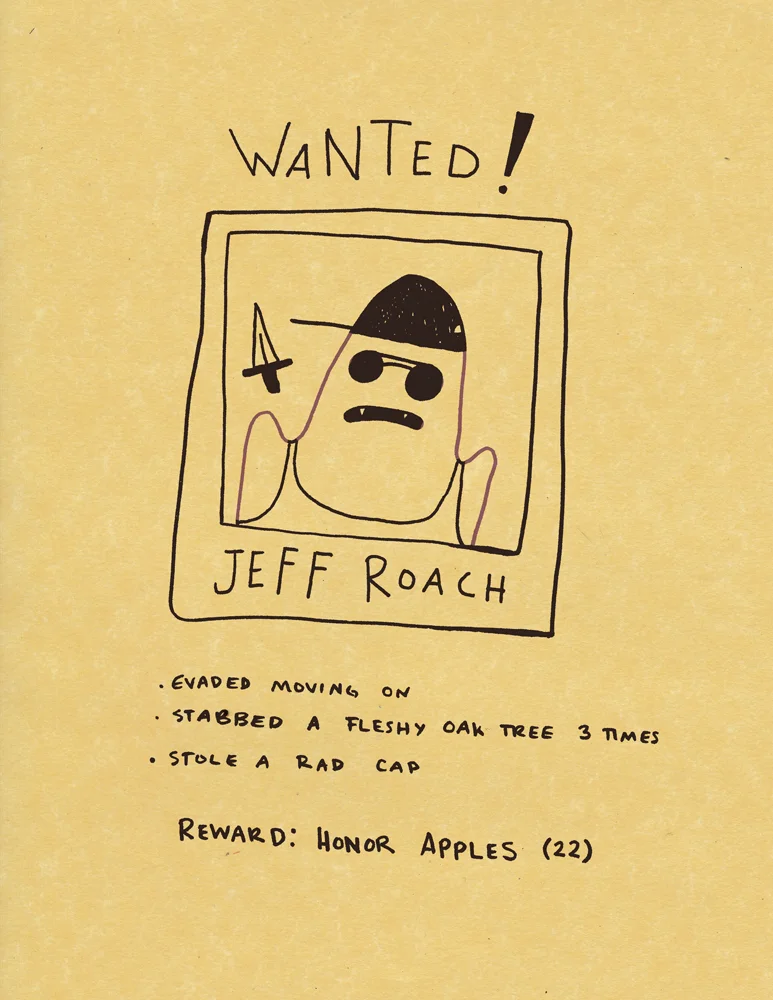 WANTED!
JEFF ROACH
· EVADED MOVING ON
· STABBED A FLESHY OAK TREE 3 TIMES
· STOLE A RAD CAP
REWARD: HONOR APPLES (22)